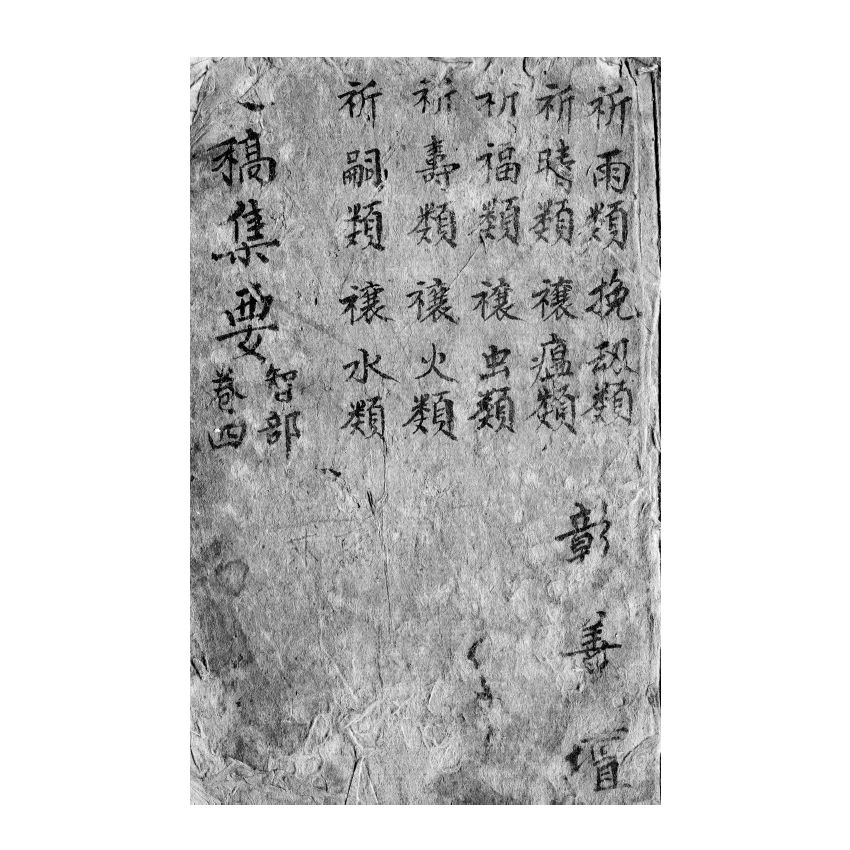 祈雨類 挽劫類
祈晴類 禳瘟類
祈福類 禳虫類
祈壽類 禳火類
祈嗣類 禳水類
彰善壇
稿集要
智部
卷四